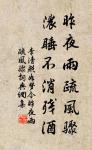 昨夜雨疏風驟
濃睡不消殘酒
李清照如夢令昨夜雨
疏風驟詞典調集